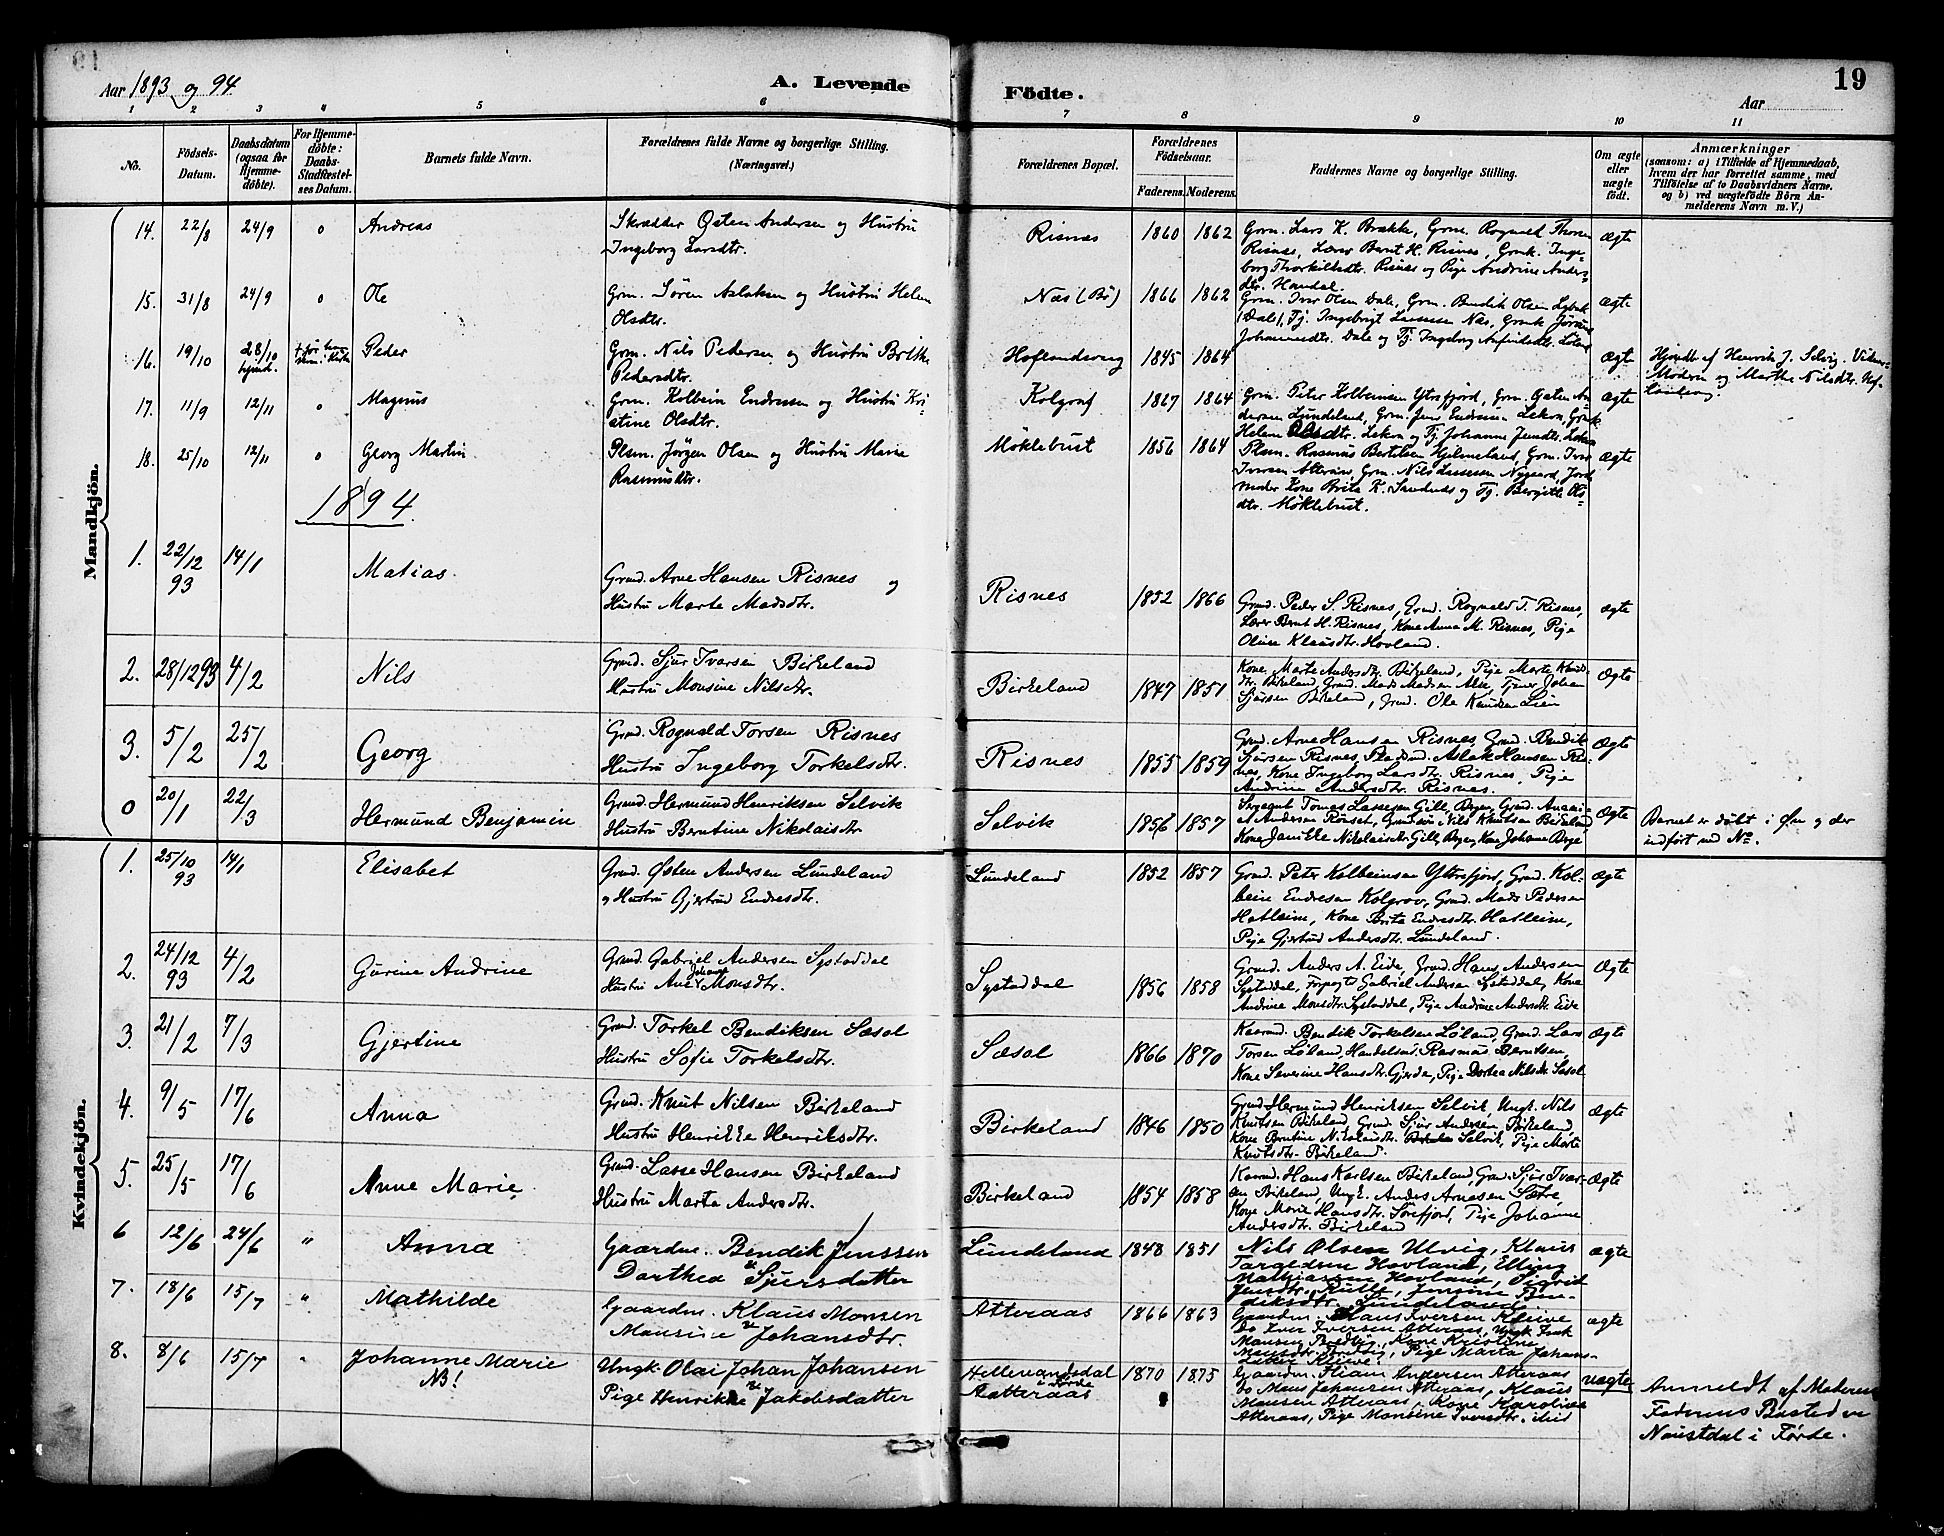 Aar 1893 og 94
A. Levende
Födte.
19
Aar
1 2 3 " 5 6 7 8 9 10 11
No.
Födsels-
Datum.
Daabsdatum
(ogsaa for
Hjemme-
döbte).
For Hjemme-
döbte:
Daabs-
Stadfæstel-
ses Datum.
Barnets fulde Navn.
Forældrenes fulde Navne og borgerlige Stilling.
(Næringsvei.)
Forældrenes Bopæl.
Forældrenes
Födselsaar.
Faderens. Moderens.
Faddernes Navne og borgerlige Stilling.
Om ægte
eller
uægte
födt.
Anmærkninger
(saasom: a) i Tilfælde af Hjemmedaab,
hvem der har forrettet samme, med
Tilföielse af to Daabsvidners Navne.
og b) ved uægtefödte Börn An-
melderens Navn m. V.)
Mandkjön.
14. 22/8 24/9 0 Andreas
Skrædder Østen Andersen og Hustru
Ingeborg Larsdtr.
Risnæs 1860 1862
Grm. Lars K. Brække, Grm. Rognald Thorsen
Risnæs, Lærer Bernt H. Risnæs, Gmk. Inge-
borg Thorkilsdtr. Risnæs og Pige Andrine Anders-
dtr. Haudal.
Ægte
15. 31/8 24/9 0 Ole
Grm. Sören Aslaksen og Hustru Helene
Olsdtr.
Næs (Bö) 1866 1862
Grm. Iver Olsen Dale, Grm. Bendik Olsen
(Dale), Tj. Ingebrigt Larssen Næs, Gmk.
Johannesdtr. Dale og Tj. Ingeborg
ægte
16. 19/10 28/10 hjmd. Peder
Grm. Nils Pedersen og Hustru Brithe
Pedersdtr.
Hoflandsvug 1845 1864
ægte
Hjemdt. af Henrik J. Selvig. Vidner
Moderen og Marthe Nilsdtr. Hof-
landsvug.
17. 11/9 12/11 0 Magnus
Grm. Kolbein Endresen og Hustru Kri-
stine Olsdtr.
Kolgrof 1867 1864
Grm. Peter Kolbeinsen Ytrefjord, Grm. Østen An-
dersen Lundeland, Grm. Jens Endresen Lekva, Gmk.
Helene Olsdtr. Lekva og Tj. Johanne Jensdtr. Lekva
ægte
18. 25/10 12/11 0 Georg Martin
Plsm. Jörgen Olsen og Hustru Marie
Rasmusdtr.
Möklebust 1856 1864
Plsm. Rasmus Bertilsen Hjelmeland, Grm. Iver
Iversen Atteraas, Grm. Nils Larssen Nygaard, Jord-
moder Kone Brita K. Sandnæs og Tj. Bergitte Ols-
dtr. Möklebust.
ægte
1894.
1. 22/12 93 14/1 Matias.
Grmd. Arne Hansen Risnes og
Hustru Marte Madsdtr.
Risnes 1852 1866
Grmd. Peder S. Risnes, Grmd. Rognald T. Risnes,
Lærer Bernt H. Risnes, Kone Anna M. Risnes, Pige
Oline Klausdtr. Hovland.
ægte
2. 28/12 93 4/2 Nils
Grmd. Sjur Ivarsen Birkeland
Hustru Monsine Nilsdtr.
Birkeland 1847 1851
Kone Marte Andersdtr. Birkeland, Pige Marte Knuts-
dtr. Birkeland, Grmd. Mads Madsen Ase, Tjener Johan
Sjursen Birkeland, Grmd. Ole Knudsen Lien
Ægte
3. 5/2 25/2 Georg
Grmd. Rognald Torsen Risnes
Hustru Ingeborg Torkelsdtr.
Risnes 1855 1859
Grmd. Arne Hansen Risnes, Grmd. Bendik
Sjursen Risnes, Pladsmd. Aslak Hansen Ris-
nes, Kone Ingeborg Larsdtr. Risnes, Pige
Andrine Andersdtr. Risnes.
Ægte
0 20/1 22/3 Hermund Benjamin
Grmd. Hermund Henriksen Selvik
Hustru Berntine Nikolaisdtr
Selvik 1856 1857
Sergeant Tomas Lassesen Gill, Bergen, Grmd. Anani-
as Andersen Röset, Grmdssön Nils Knutsen Birkeland,
Kone Janikke Nikolaisdtr. Gill, Bergen, Kone Johane Berge
Ægte
Barnet er döbt i Øn og der
indfört med No.
Kvindekjön.
1. 25/10 93 14/1 Elisabet
Grmd. Østen Andersen Lundeland
og Hustru Gjertrud Endresdtr.
Lundeland 1852 1857
Grmd. Peter Kolbeinsen Ytrefjord, Grmd. Kol-
bein Endresen Kolgrov, Grmd. Mads Pedersen
Hatleim, Kone Brita Endresdtr. Hatleim,
Pige Gjertrud Andersdtr. Lundeland.
ægte
2. 24/12 93 4/2 Gurine Andrine
Grmd. Gabriel Andersen Systaddal
Hustru Ane Johanne Monsdtr.
Systaddal 1856 1858
Grmd. Anders A. Eide, Grmd. Hans Andersen
Systaddal, Forpagt Gabriel Andersen Systaddal, Kone
Andrine Monsdtr. Systaddal, Pige Andrine Andersdtr. Eide
Ægte
3. 21/2 7/3 Gjertine
Grmd. Torkel Bendiksen Sæsol
Hustru Sofie Torkelsdtr.
Sæsol 1866 1870
Kaarmd. Bendik Torkelsen Löland, Grmd. Lars
Torsen Löland, Handelsmd. Rasmus Berntsen,
Kone Severine Hansdtr. Gjerde, Pige Dortea Nilsdtr. Sæsol
Ægte
4. 9/5 17/6 Anna
Grmd. Knut Nilsen Birkeland
Hustru Henrikke Henriksdtr.
Birkeland 1846 1850
Grmd. Hermund Henriksen Selvik, Ungk. Nils
Knutsen Birkeland, Grmd. Sjur Andersen Birkeland,
Kone Berntine Nikolaisdtr. Selvik, Pige Marte
Knutsdtr. Birkeland.
Ægte
5. 25/5 17/6 Anne Marie.
Grmd. Lasse Hansen Birkeland
Hustru Marta Andersdtr.
Birkeland 1854 1858
Kaarmd. Hans Karlsen Birkeland, Grmd. Sjur Ivar-
sen Birkeland, Ungk. Anders Arnesen Sætre,
Kone Marie Hansdtr. Sörefjord, Pige Johanne
Andersdtr. Birkeland
Ægte
6 12/6 24/6 " Anna
Gaardm. Bendik Jenssen
Dorthea Sjursdatter
Lundeland 1848 1851
Nils Olsen Ulvig, Klaus
Targedsen Hovland, Elling
Mathiassen Hovland, Sigrid
Jensdtr. Kulle, Jensine Ben-
diksdtr. Lundeland.
ægte
7. 18/6 15/7 " Mathilde
Gaardm. Klaus Monsen
Monsine Johansdtr.
Atteraas 1866 1863
Gaardm. Klaus Iversen Kleive
Do Iver Iversen Atteraas, Ungk
Monsen Bredvig, Kone Kristine
Monsdtr. Bredvig, Pige Marta Johans-
Kleive.
ægte
8. 8/6 15/7 " Johanne Marie
NB!
Ungk. Olai Johan Johansen
Pige Henrikke Jakobsdatter
Hellevangsdal
i Förde
Aatteraas
1870 1875
Gaardm. Andersen Atteraas
Do Mons Johansen Atteraas, Klaus
Monsen Atteraas, Kone Karoline
Atteraas, Pige Monsine Iversdtr. ibid
uægte
Anmeldt af Moderen
Faderens Bosted er
Naustdal i Förde.